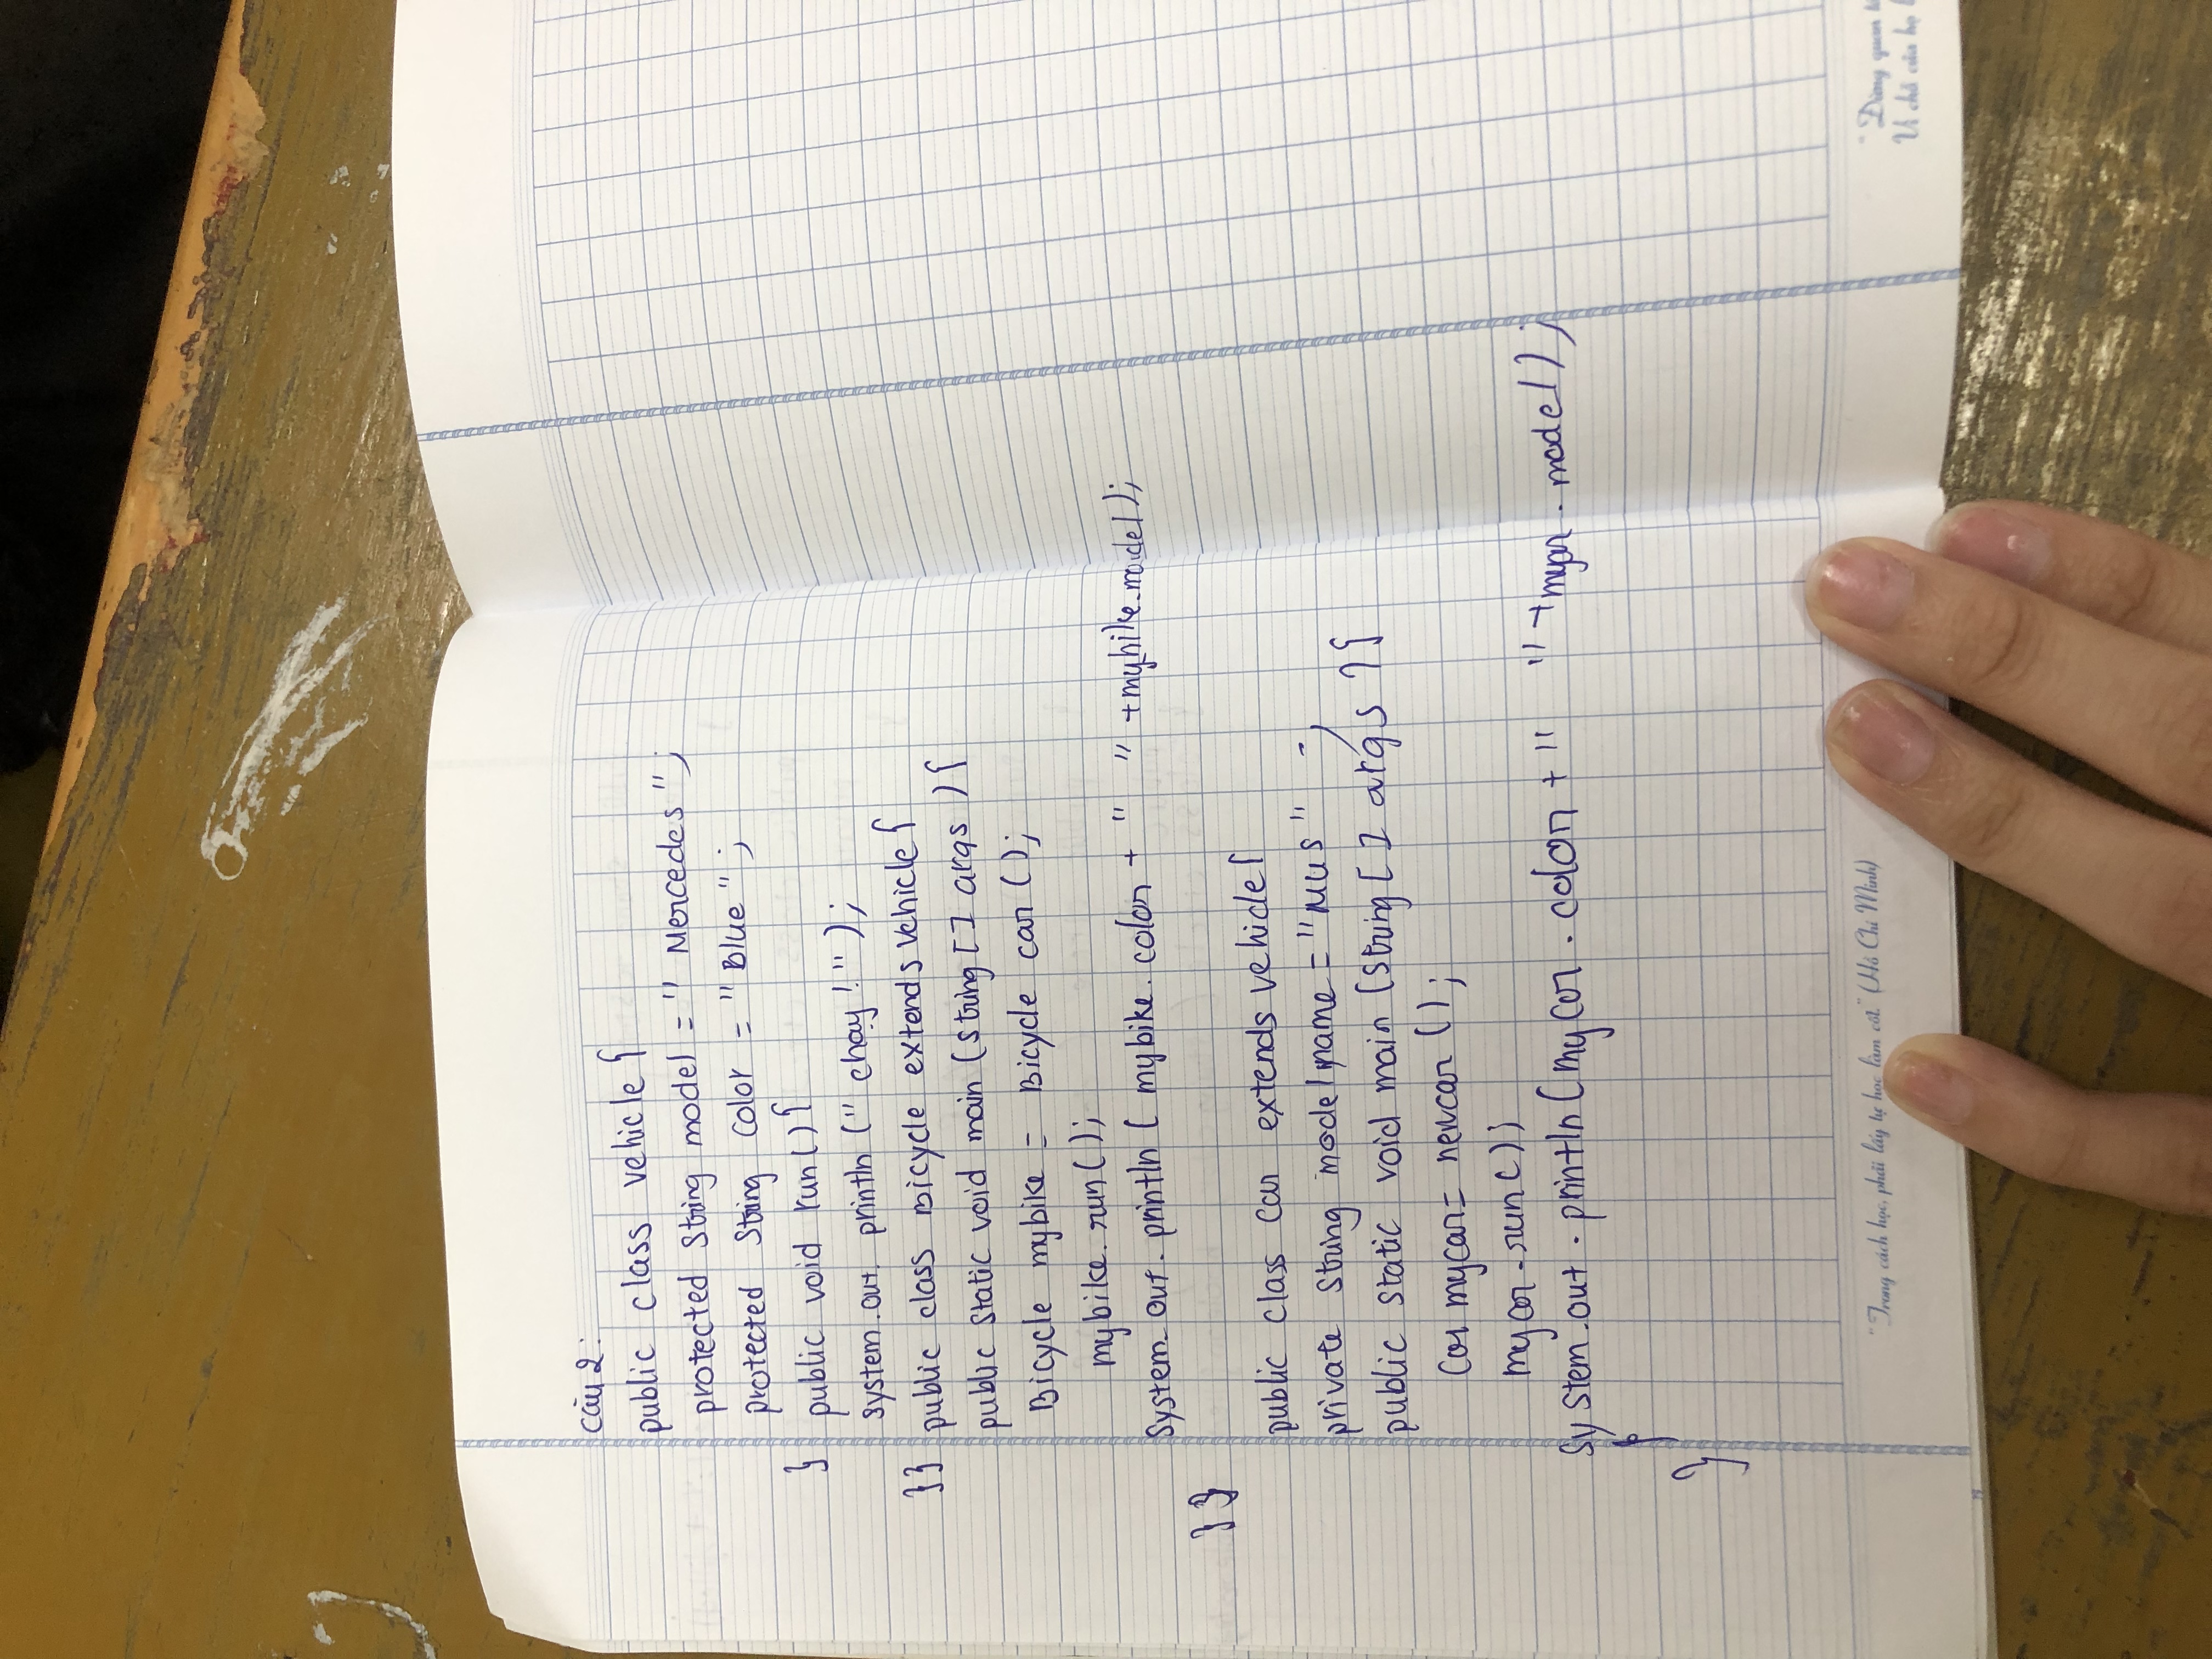 Câu 2:
public class vehicle {
protected String model = " Mercedes " ;
protected String color = " Blue " ;
} public void run() {
system.out. println (" chạy ! " );
}} public class Bicycle extends vehicle {
public static void main (String [] args ) {
Bicycle mybike = Bicycle car ();
mybike. run();
System. out. println ( mybike. color + " " +mybike.model);
}}
public class Car extends vehicle {
private String modelname = "Mus" ;
public static void main (String [] args ) {
Car mycar= newcar ();
mycar. run();
System.out. println (mycar. color + " " +mycar. model);
}
}
"Trong cách học, phải lấy tự học làm cốt." (Hồ Chí Minh)
"Đừng quan
Vì chỗ của họ